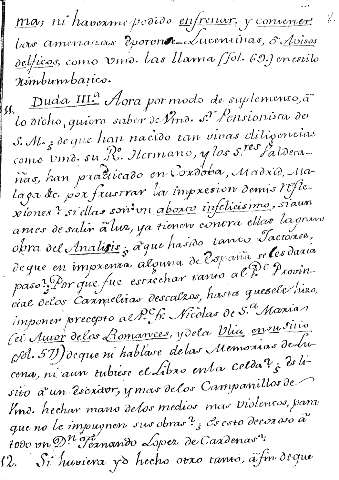 mas ni haverme podido enfrenar, y contener
las amenazas Lucentinas, o Avisos
delficos, como Vmd. las llama (fol. 69.) en estilo
rimbumbatico.
11. Duda III.ª Aora por modo de suplemento, â
lo dicho, quiero saber de Vmd. S.r Pensionista de
S. M. de que han nacido tan vivas diligencias
como Vmd. su R.o Hermano, y los S.res Valdeca-
ñas, han practicado en Cordova, Madrid, Ma-
laga &c. por frustrar la impresion de mis refle-
xiones? Si ellas son un aborto infelicisimo, si aun
antes de salir â luz, ya tienen contra ellas la grave
obra del Analisis; â que ha sido tanto
de que en imprenta alguna de España se les daria
paso? Por que fue estrechar tanto al P.e Provin-
cial de los Carmelitas descalzos, hasta que se le hizo
imponer precepto al P.e fr. Nicolas de S.ta Maria
(el Autor de los Romances, y de la
fol. 57) de que ni hablase de las Memorias de Lu-
cena, ni aun tubiese el Libro en la Celda?
sito â un escritor, y mas de los Campanillos de
Vmd. hechar mano de los medios mas violentos, para
que no le impugnen sus obras? Es esto decoroso â
todo un D.n Fernando Lopez de Cardenas?
12. Si huviera yo hecho otro tanto, â fin de que